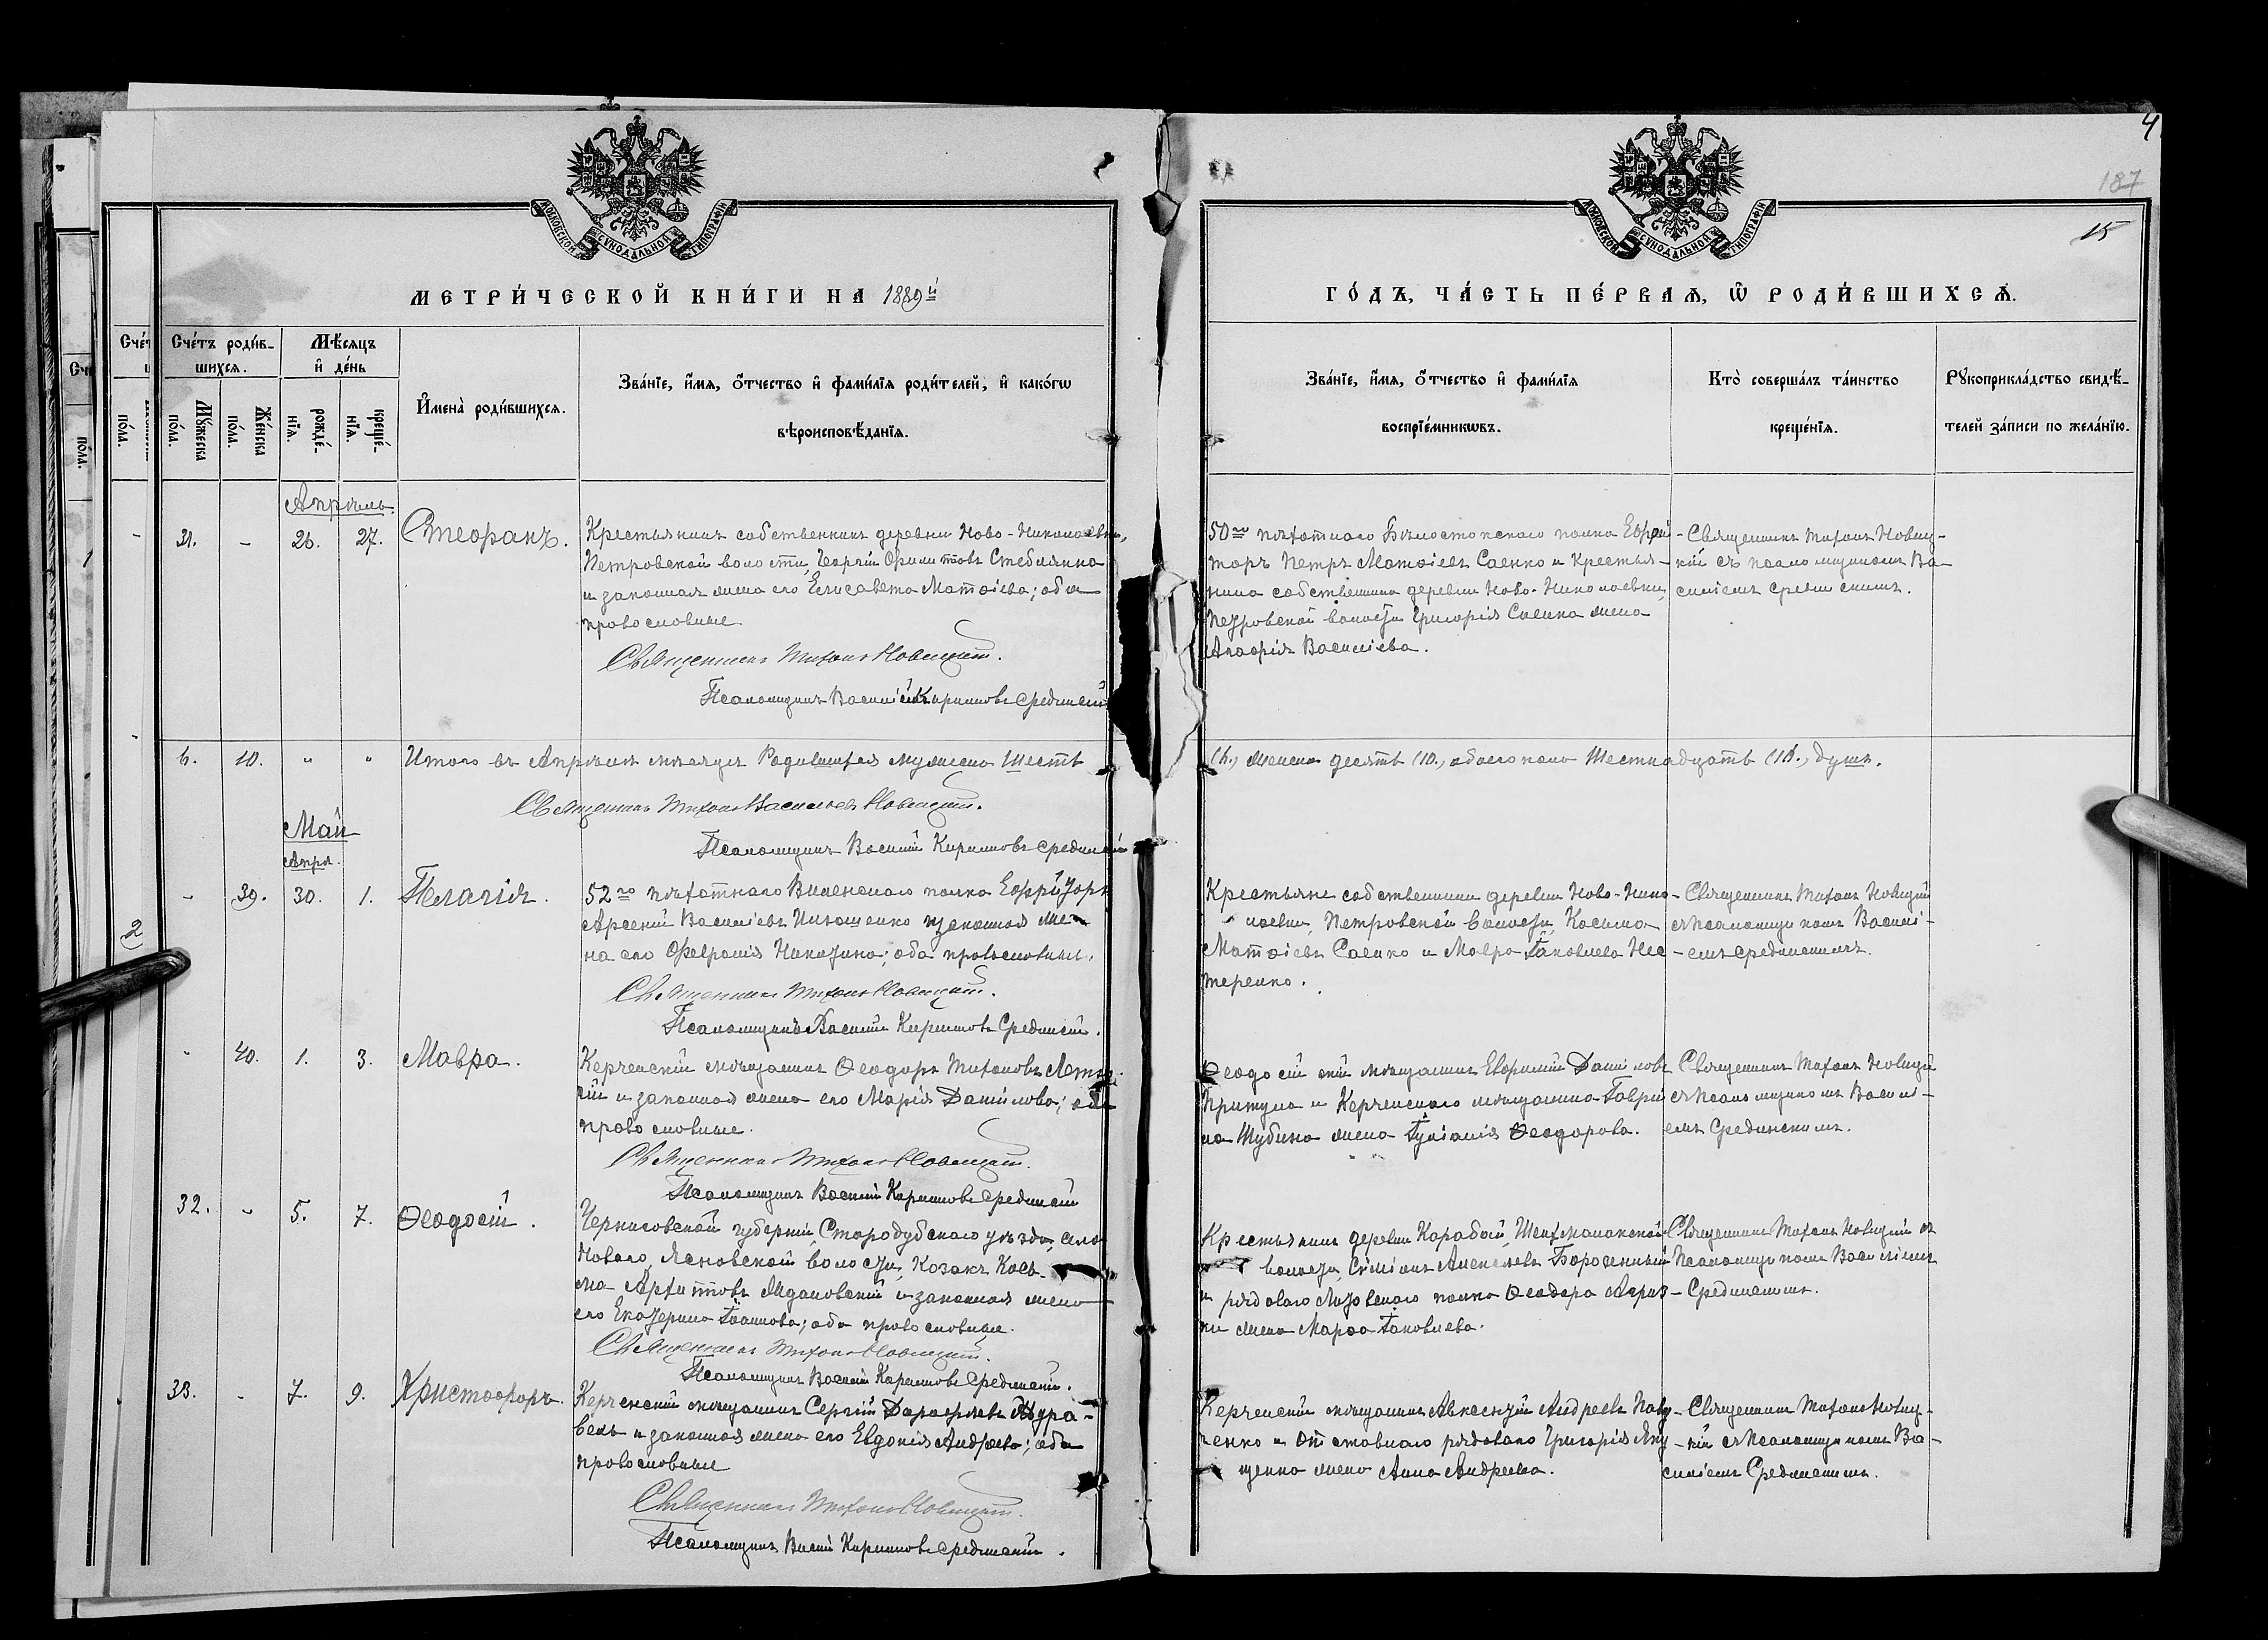 4
187
15
МОСКОВСКОЙ СѴНОДАЛЬНОЙ ТИПОГРАФІИ
МЕТРИ́ЧЕСКОЙ КНИ́ГИ НА 1889й
Сче́тъ роди́в-
шихся.
Мѣ́сяцъ
и҆ де́нь
Мꙋ́жеска
по́ла.
Же́нска
по́ла.
рожде́-
нїѧ.
креще́-
нїѧ.
И҆мена̀ роди́вшихся.
Зва́нїе, и҆́мѧ, ѻ҆́тчество и҆ фами́лїѧ роди́телей, и҆ како́гѡ
вѣроисповѣ́данїѧ.
Апрѣль.
31. - 26. 27. Стефанъ.
Крестьянинъ собственникъ деревни Ново-Николаевки,
Петровской волости, Георгій Филиповъ Стеблянко
и законная жена его Елисавета Матѳіева; оба
православные
Священникъ Тихонъ Новицкій.
Псаломщикъ Василій Кириловъ Срединскій
6. 10. " " Итого въ Апрѣлѣ мѣсяцѣ Родившихся мужеска шесть
Священникъ Тихонъ Васильевъ Новицкій.
Псаломщикъ Василій Кириловъ Срединскій
Май
Апрл.
- 39. 30. 1. Пелагія.
52го пѣхотнаго Виленскаго полка Ефрейторъ
Арсеній Васильевъ Ильяшенко и законная же-
на его Февронія Никитина; оба православные.
Священникъ Тихонъ Новицкій.
Псаломщикъ Василій Кириловъ Срединскій.
- 40. 1. 3. Мавра.
Керченскій мѣщанинъ Ѳеодоръ Тихоновъ
и законная жена его Марія Данилова; оба
православные.
Священникъ Тихонъ Новицкій.
Псаломщикъ Василій Кириловъ Срединскій
32. - 5. 7. Ѳеодосій.
Черниговской губерніи, Стародубскаго уѣзда, села
Новаго, волости, Козакъ Кось-
ма и законная жена
его Екатерина Іоаннова; оба православные.
Священникъ Тихонъ Новицкій.
Псаломщикъ Василій Кириловъ Срединскій.
33. - 7. 9. Христофоръ.
Керченскій мѣщанинъ Сергій Дорофеевъ Жура-
вель и законная жена его Евдокія Андреева; оба
православные
Священникъ Тихонъ Новицкій.
Псаломщикъ Василій Кириловъ Срединскій.
МОСКОВСКОЙ СѴНОДАЛЬНОЙ ТИПОГРАФІИ
ГО́ДЪ, ЧА́СТЬ ПЕ́РВАѦ, Ѽ РОДИ́ВШИХСѦ.
Зва́нїе, и҆́мѧ, ѻ҆́тчество и҆ фами́лїѧ
воспрїе́мникѡвъ.
Кто̀ соверша́лъ та́инство
креще́нїѧ.
Рꙋкоприкла́дство свидѣ́-
телей за́писи по жела́нїю.
50го пѣхотнаго Бѣлостокскаго полка Ефрей-
торъ Петръ Матѳіевъ Саенко и Крестья-
нина собственника деревни Ново-Николаевки,
Петровской волости Григорія Саенка жена
Агафія Василіева.
Священникъ Тихонъ Новиц-
кій съ псаломщикомъ Ва-
силіемъ Срединскимъ.
(6.) женска десять (10.) обоего пола Шестнадцать (16.) душъ.
Крестьяне собственники деревни Ново-Нико-
лаевки, Петровской волости, Косьма
Матѳіевъ Саенко и Мавра Іаковлева Нес-
теренко.
Священникъ Тихонъ Новицкій
съ Псаломщикомъ Василі-
емъ Срединскимъ.
Ѳеодосійскій мѣщанинъ Евфимій Даніиловъ
Притула и Керченскаго мѣщанина Гаврі-
ла Шубина жена Іуліанія Ѳеодорова.
Священникъ Тихонъ Новицкій
съ Псаломщикомъ Василі-
емъ Срединскимъ.
Крестьянинъ деревни Карабай,
волости, Алексѣевъ
и рядоваго полка Ѳеодора
жена Марѳа Іаковлева.
Священникъ Тихонъ Новицкій съ
Псаломщикомъ Василіемъ
Срединскимъ.
Керченскій мѣщанинъ Алексѣй Андреевъ
и Отставнаго рядоваго Григорія Яку-
щенка жена Анна Андреева.
Священникъ Тихонъ Новиц-
кій съ Псаломщикомъ Ва-
силіемъ Срединскимъ.